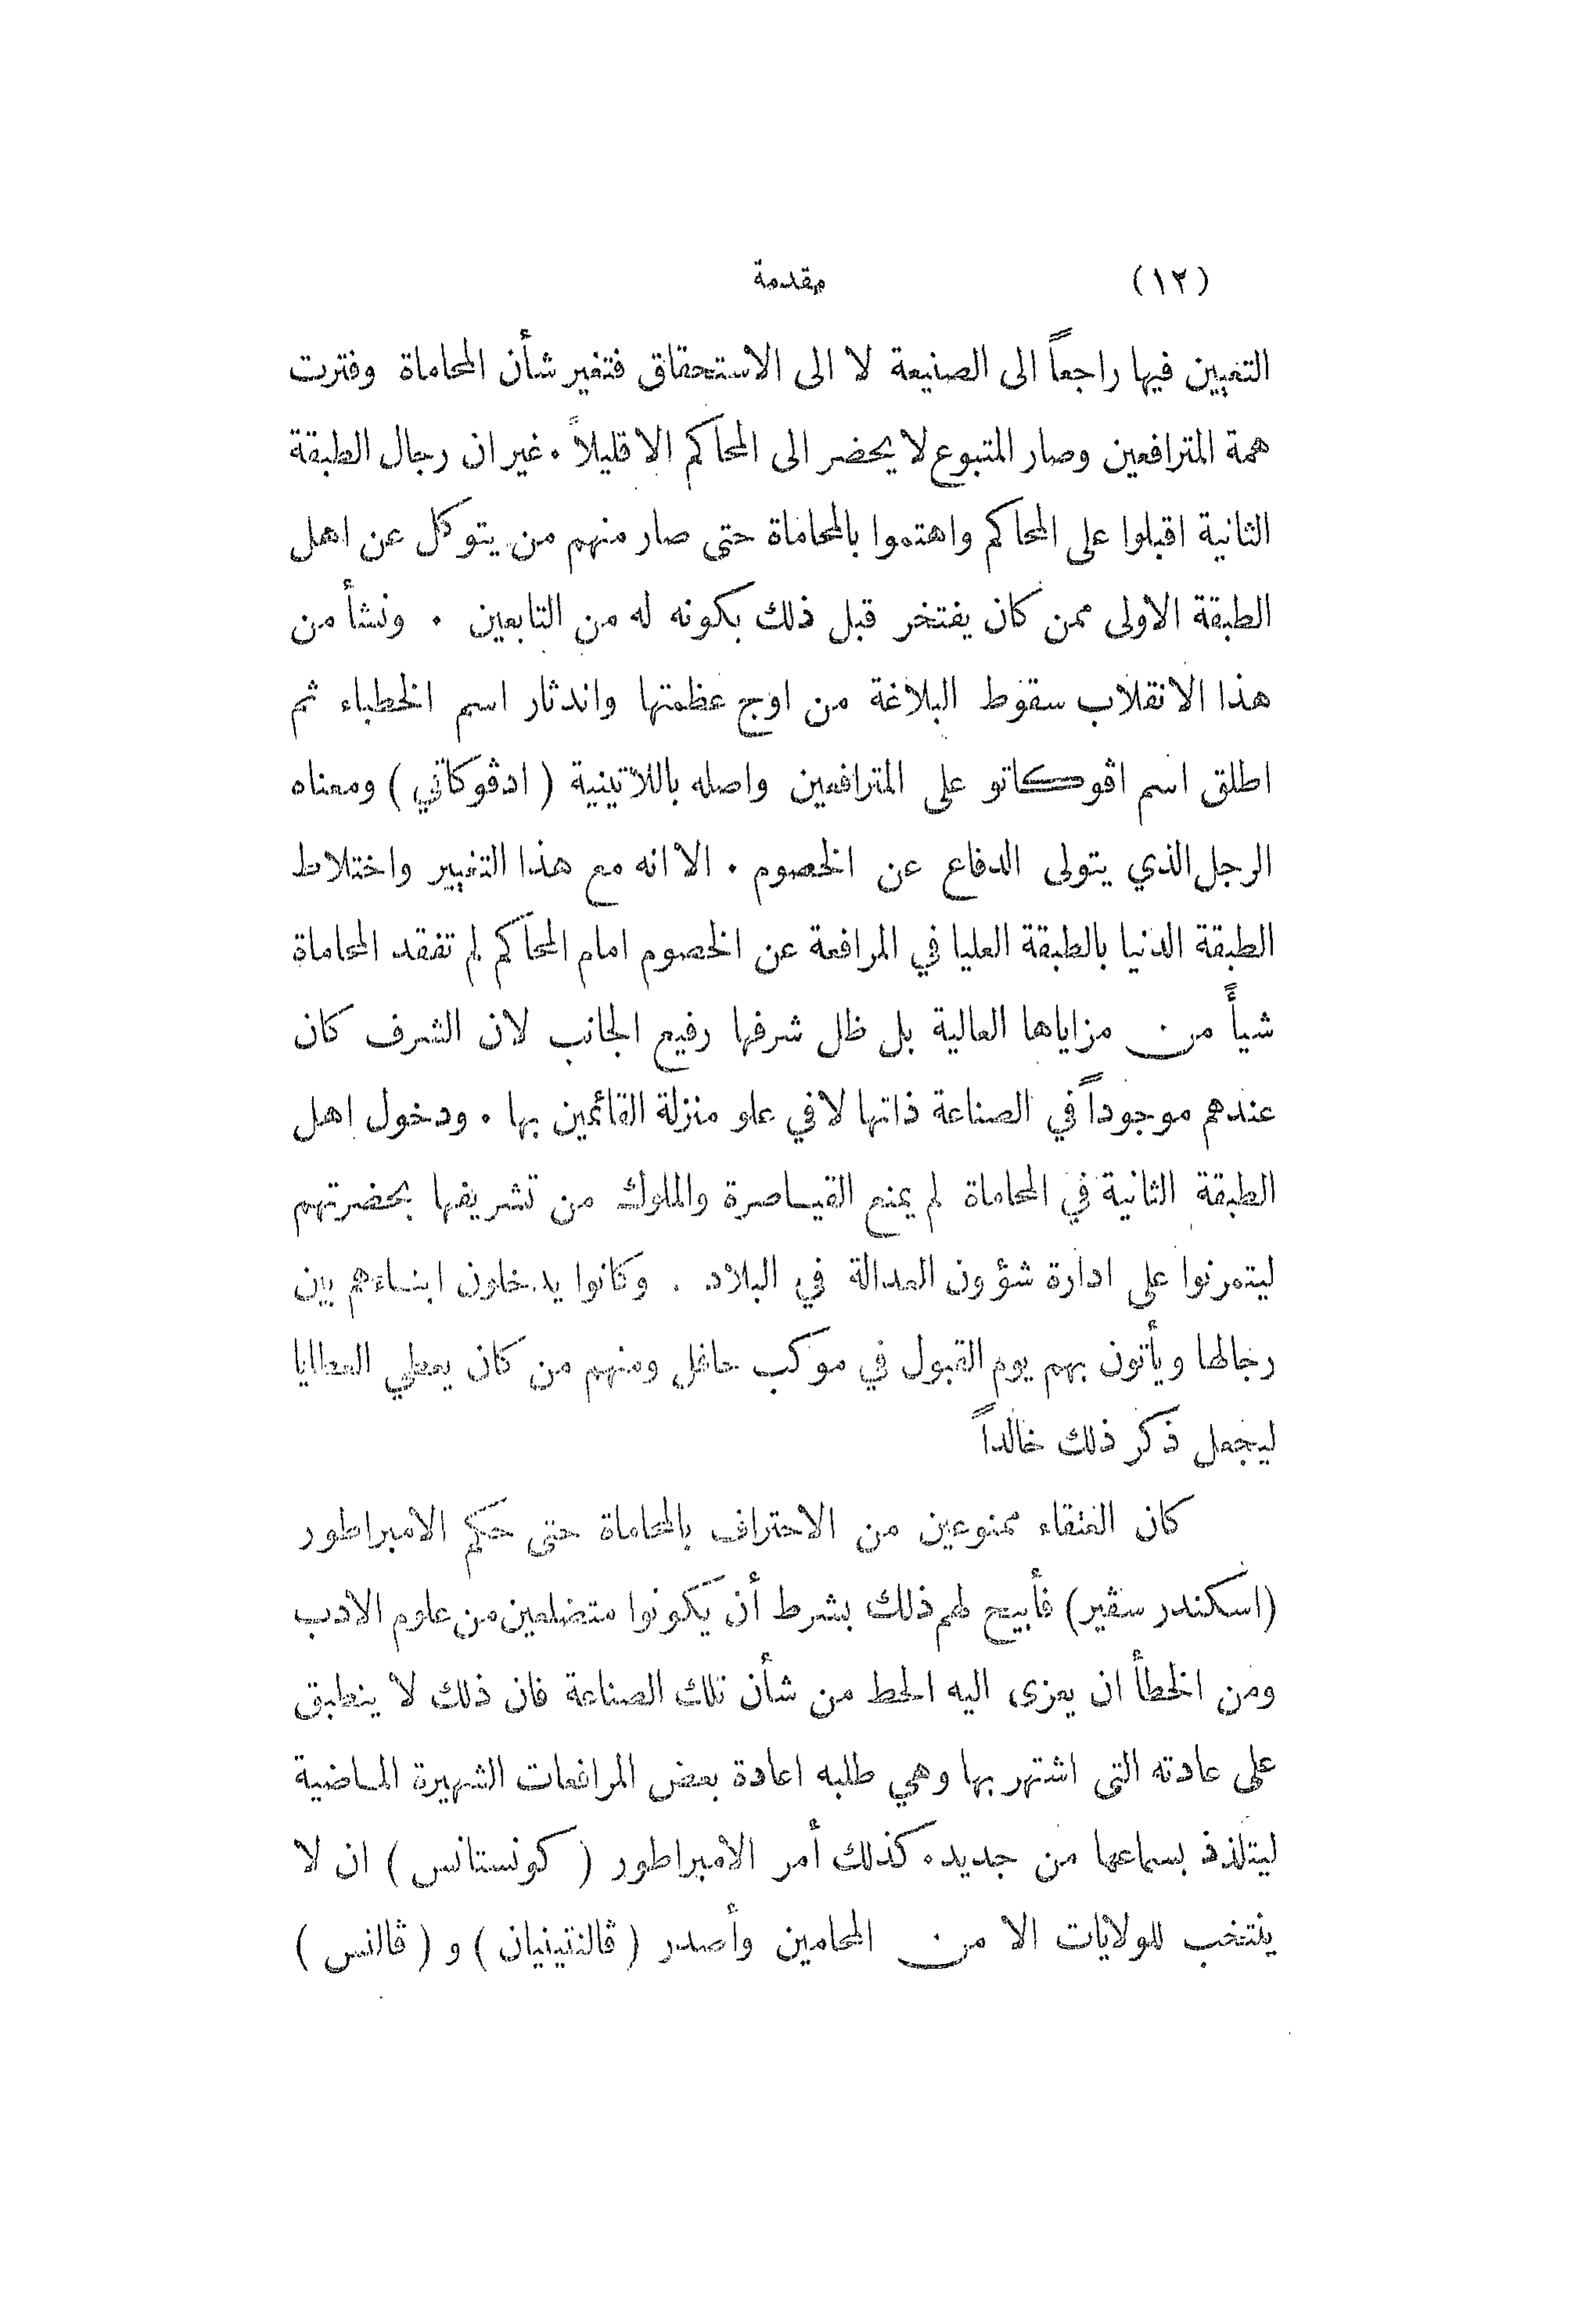 (١٢) مقدمة
التعيين فيها راجعاً الى الصنيعة لا الى الاستحقاق فتغير شأن المحاماة وفترت
همة المترافعين وصار المتبوع لا يحضر الى المحاكم الا قليلاً . غير ان رجال الطبقة
الثانية اقبلوا على المحاكم واهتموا بالمحاماة حتى صار منهم من يتوكل عن اهل
الطبقة الاولى ممن كان يفتخر قبل ذلك بكونه له من التابعين . ونشأ من
هذا الانقلاب سقوط البلاغة من اوج عظمتها واندثار اسم الخطباء ثم
اطلق اسم اڤوكاتو على المترافعين واصله باللاتينية ( ادڤوكاتي ) ومعناه
الرجل الذي يتولى الدفاع عن الخصوم . الا انه مع هذا التغيير واختلاط
الطبقة الدنيا بالطبقة العليا في المرافعة عن الخصوم امام المحاكم لم تفقد المحاماة
شيأً من مزاياها العالية بل ظل شرفها رفيع الجانب لان الشرف كان
عندهم موجوداً في الصناعة ذاتها لا في علو منزلة القائمين بها . ودخول اهل
الطبقة الثانية في المحاماة لم يمنع القياصرة والملوك من تشريفها بحضرتهم
ليتمرنوا على ادارة شؤون العدالة في البلاد . وكانوا يدخلون ابناءهم بين
رجالها ويأتون بهم يوم القبول في موكب حافل ومنهم من كان يعطي العطايا
ليجعل ذكر ذلك خالداً
كان العتقاء ممنوعين من الاحتراف بالمحاماة حتى حكم الامبراطور
(اسكندر سڤير) فأبيح لهم ذلك بشرط أن يكونوا متضلعين من علوم الادب
ومن الخطأ ان يعزى اليه الحط من شأن تلك الصناعة فان ذلك لا ينطبق
على عادته التى اشتهر بها وهي طلبه اعادة بعض المرافعات الشهيرة الماضية
ليتلذذ بسماعها من جديد . كذلك أمر الامبراطور ( كونستانس ) ان لا
ينتخب للولايات الا من المحامين وأصدر ( ڤالنتينيان ) و ( ڤالنس )